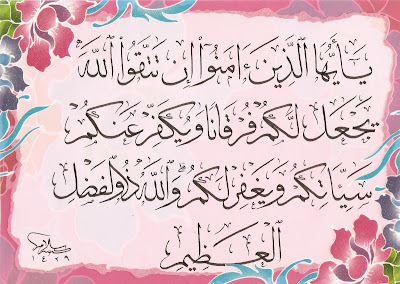 يَـٰٓأَيُّهَا ٱلَّذِينَ ءَامَنُوٓا۟ إِن تَتَّقُوا۟ ٱللَّهَ
يَجْعَل لَّكُمْ فُرْقَانًا وَيُكَفِّرْ عَنكُمْ
سَيِّـَٔاتِكُمْ وَيَغْفِرْ لَكُمْ ۗ وَٱللَّهُ ذُو ٱلْفَضْلِ
ٱلْعَظِيمِ